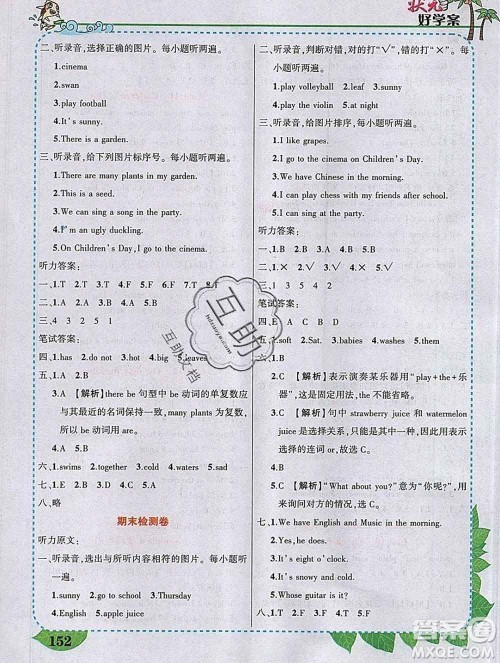 状元
好学案
二、听录音,选择正确的图片。每小题听两遍。
1.cinema
2.swan
3.play football
4.It's sunny.
5.There is a garden.
三、听录音,给下列图片标序号。每小题听两遍。
1.There are many plants in my garden.
2.This is a seed.
3.We can sing a song in the party.
4.I'm an ugly duckling.
5.On Children's Day, I go to cinema.
听力答案:
一、1.T 2.T 3.F 4.T 5.F
二、1.B 2.A 3.A 4.A 5.B
三、4 3 2 5 1
笔试答案:
四、1.hot 2.has 3.at 4.big 5.leaves
五、1.A 2.B
3.A 【解析】there be 句型中 be 动词的单复数应
与其最近的名词保持一致,many plants 为复数,
所以 be 动词应用 are。
4.A 5.B
六、1.swims 2.together 3.cold 4.waters 5.sad
七、1.T 2.F 3.T 4.F 5.T
八、略
期末检测卷
听力原文:
一、听录音,选出与所听内容相符的图片。每小题听
一遍。
1.sunny 2.go to school 3.Thursday
4.English 5.apple juice
152
二、听录音,判断对错,对的打“√”,错的打“×”。每
小题听两遍。
1.play volleyball 2.leaf 3.sunny
4.play the violin 5.at night
三、听录音,给图片排序,每小题听两遍。
1.I like grapes.
2.I go to the cinema on Children's Day.
3.We have Chinese in the morning.
4.I can play chess with my friends after school.
5.There is a garden.
听力答案:
一、1.B 2.B 3.A 4.A 5.B
二、1.× 2.√ 3.√ 4.× 5.√
三、4 1 3 5 2
笔试答案:
四、E A C B D
五、1.soft 2.but 3.sunny 4.tables 5.on
六、1.B 2.A
3.C 【解析】表示演奏某乐器用“play+the+乐
器”,这是固定用法,the 不能省略。
4.C 【解析】句中 strawberry juice 和 watermelon
juice 是选择关系,只能选其中一个,故选择表
选择的连词 or,故选 C。
5.C 【解析】“What about you?”意为“你呢?”,
用来询问对方的情况,选 C。
七、1.We have English and Music in the morning.
2.Yes,he does.
3.It's eight o'clock.
4.It's snowy and cold.
5.Whose guitar is it?
八、1.T 2.F 3.F 4.T 5.T
互助
hdzuoyewu.com
互助文档
答案圈
MXQE.COM